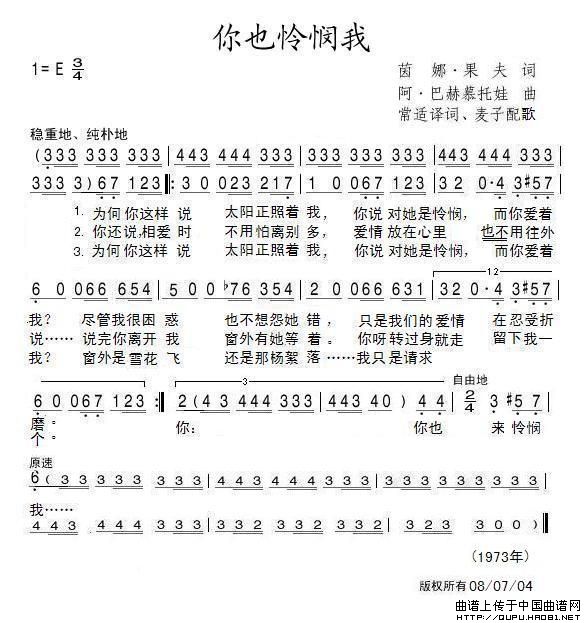 你也怜悯我
1=E 3/4
茵 娜·果 夫 词
阿·巴赫慕托娃 曲
常适译词、麦子配歌
稳重地、纯朴地
(333 333 333 | 443 444 333 | 443 444 333 | 333 333 333
333 3) 67 123 |: 3 0 023 217 | 1 0 067 123 | 32 0·4 3#57
1. 为何你这样 说 太阳正照着 我, 你说 对她是怜悯, 而你爱着
2. 你还说,相爱 时 不用怕离别 多, 爱情 放在心里 也不用往外
3. 为何你这样 说 太阳正照着 我, 你说 对她是怜悯, 而你爱着
12
6 0 066 654 | 5 0 0 ♭76 354 | 2 0 066 631 | 32 0·4 3#57
我? 尽管我很困 惑 也不想怨她 错, 只是我们的爱情 在忍受折
说…… 说完你离开 我 窗外有她等 着。 你呀转过身就走 留下我一
我? 窗外是雪花 飞 还是那杨絮 落……我只是请求
3
自由地
6 0 067 123 :| 2(43 444 333 | 443 40) 44 | 2/4 3 #5 7
磨。 你: 你也 来 怜悯
个。
原速
6( 3 333 333 | 333 333 333 | 443 444 333
我……
443 444 333 | 333 332 333 | 332 323 | 300) ||
(1973年)
版权所有 08/07/04
曲谱上传于中国曲谱网
HTTP://QUPU.HAO81.NET